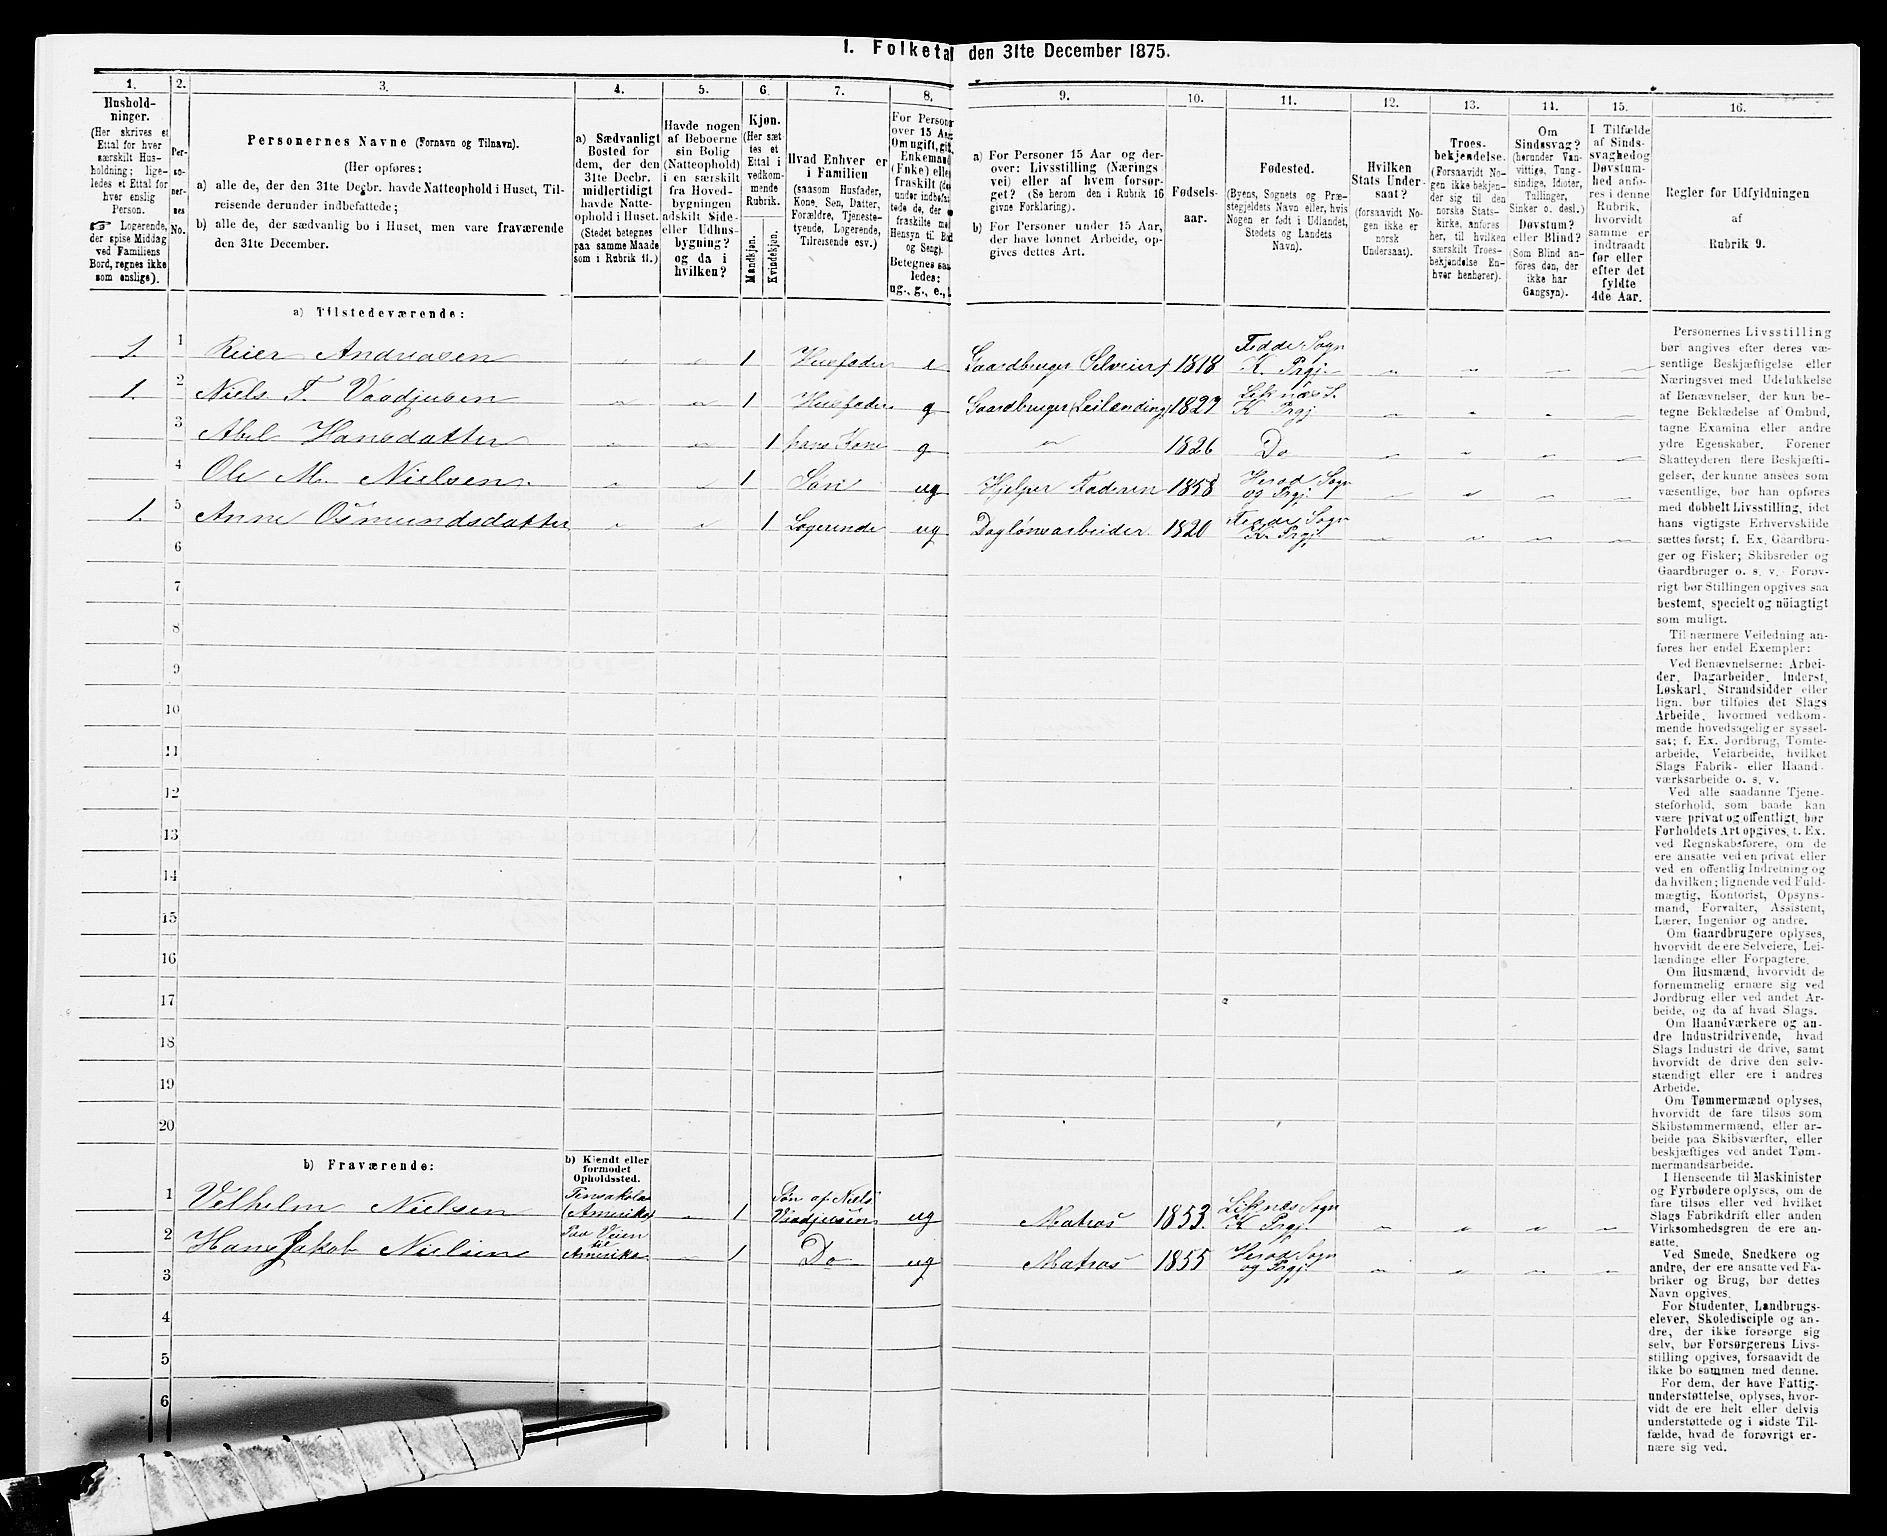 1. Folketal den 31te December 1875.
1. 2. 3. 4. 5. 6. 7. 8. 9. 10. 11. 12. 13. 14. 15. 16.
Hushold-
ninger.
(Her skrives et
Ettal for hver
særskilt Hus-
holdning; lige-
ledes et Ettal for
hver enslig
Person.
☞ Logerende,
der spise Middag
ved Familiens
Bord, regnes ikke
som enslige).
Per-
so-
ner-
nes
No.
Personernes Navne (Fornavn og Tilnavn).
(Her opføres:
a) alle de, der den 31te Decbr. havde Natteophold i Huset, Til-
reisende derunder indbefattede;
b) alle de, der sædvanlig bo i Huset, men vare fraværende
den 31te December.
a) Sædvanligt
Bosted for
dem, der den
31te Decbr.
midlertidigt
havde Natte-
ophold i Huset.
(Stedet betegnes
paa samme Maade
som i Rubrik 11.)
Havde nogen
af Beboerne
sin Bolig
(Natteophold)
i en særskilt
fra Hoved-
bygningen
adskilt Side-
eller Udhus-
bygning?
og da i
hvilken?
Kjøn.
(Her sæt
tes et
Ettal i
vedkom-
mende
Rubrik.
Mandkjøn.
Kvindekjøn.
Hvad Enhver er
i Familien
(saasom Husfader,
Kone, Søn, Datter,
Forældre, Tjeneste-
tyende, Logerende,
Tilreisende osv.)
For Person
over 15 Aar
Om ugift, gift
Enkemand
(Enke) eller
fraskilt (de
under indbefat
tede de, der e
fraskilte me
Hensyn til Bo
og Seng).
Betegnes saa
ledes:
ug., g., e.,
a) For Personer 15 Aar og der-
over: Livsstilling (Nærings
vei) eller af hvem forsør-
get? (Se herom den i Rubrik 16
givne Forklaring).
b) For Personer under 15 Aar,
der have lønnet Arbeide, op-
gives dettes Art.
Fødsels-
aar.
Fødested.
(Byens, Sognets og Præ-
stegjeldets Navn eller, hvis
Nogen er født i Udlandet,
Stedets og Landets
Navn).
Hvilken
Stats Under-
saat?
(forsaavidt No-
gen ikke er
norsk
Undersaat).
Troes-
bekjendelse.
(Forsaavidt No-
gen ikke bekjen-
der sig til den
norske Stats-
kirke, anføres
her, til hvilken
særskilt Troes-
bekjendelse En-
hver henhører).
Om
Sindssvag?
(herunder Van-
vittige, Tung-
sindige, Idioter,
Tullinger,
Sinker o. desl.)
Døvstum?
eller Blind?
(Som Blind an-
føres den, der
ikke har
Gangsyn).
I Tilfælde
af Sinds-
svaghed og
Døvstum-
hed anfø-
res i denne
Rubrik,
hvorvidt
samme er
indtraadt
før eller
efter det
fyldte
4de Aar.
Regler for Udfyldningen
af
Rubrik 9.
a) Tilstedeværende:
1. 1 Reier Andreasen 1 Husfader e Gaardbruger Selveier 1818 Fedde Sogn
K. Prgj.
1. 2 Niels T. Vaadjusen 1 Husfader g Gaardbruger (Leilænding) 1827 Liknæs S.
K Prgj
3 Abel Hansdatter 1 hans Kone g 1826 Do
4 Ole M. Nielsen 1 Søn ug Hjelper Faderen 1858 Herad Sogn
og Prgj.
1. 5 Anne Osmundsdatter 1 Logerende ug Daglønsarbeider 1820 Fedde Sogn
K. Prgj.
6
7
8
9
10
11
12
13
14
15
16
17
18
19
20
b) Fraværende:
b) Kjendt eller
formodet
Opholdssted.
1 Velhelm Nielsen Pensakola
(Amerika) 1 Søn af Niels
Vaadjusen ug Matros 1853 Liknæs Sogn
K Prgj
2 Hans Jakob Nielsen Paa Veien
til
Amerika 1 Do ug Matros 1855 Herad Sogn
og Prgj.
3
4
5
6
Personernes Livsstilling
bør angives efter deres væ-
sentlige Beskjæftigelse eller
Næringsvei med Udelukkelse
af Benævnelser, der kun be-
tegne Beklædelse af Ombud,
tagne Examina eller andre
ydre Egenskaber. Forener
Skatteyderen flere Beskjæfti-
gelser, der kunne ansees som
væsentlige, bør han opføres
med dobbelt Livsstilling, idet
hans vigtigste Erhvervskilde
sættes først; f. Ex. Gaardbru-
ger og Fisker; Skibsreder og
Gaardbruger o. s. v. Forøv-
rigt bør Stillingen opgives saa
bestemt, specielt og nöiagtigt
som muligt.
Til nærmere Veiledning an-
føres her endel Exempler:
Ved Benævnelserne: Arbei-
der, Dagarbeider, Inderst,
Løskarl, Strandsidder eller
lign. bør tilføies det Slags
Arbeide, hvormed vedkom-
mende hovedsagelig er syssel-
sat; f. Ex. Jordbrug, Tomte-
arbeide, Veiarbeide, hvilket
Slags Fabrik- eller Haand-
værksarbeide o. s. v.
Ved alle saadanne Tjene-
steforhold, som baade kan
være privat og offentligt, bør
Forholdets Art opgives, t. Ex.
ved Regnskabsførere, om de
ere ansatte ved en privat eller
ved en offentlig Indretning og
da hvilken; lignende ved Fuld-
mægtig, Kontorist, Opsyns-
mand, Forvalter, Assistent,
Lærer, Ingeniør og andre.
Om Gaardbrugere oplyses,
hvorvidt de ere Selveiere, Lei-
lændinge eller Forpagtere.
Om Husmænd, hvorvidt de
fornemmelig ernære sig ved
Jordbrug eller ved andet Ar-
beide, og da af hvad Slags.
Om Haandværkere og an-
dre Industridrivende, hvad
Slags Industri de drive, samt
hvorvidt de drive den selv-
stændigt eller ere i andres
Arbeide.
Om Tømmermænd oplyses,
hvorvidt de fare tilsøs som
Skibstømmermænd, eller ar-
beide paa Skibsværfter, eller
beskjæftiges ved andet Tøm-
mermandsarbeide.
I Henseende til Maskinister
og Fyrbødere oplyses, om de
fare tilsøs eller ved hvilket
Slags Fabrikdrift eller anden
Virksomhedsgren de ere an-
satte.
Ved Smede, Snedkere og
andre, der ere ansatte ved Fa-
briker og Brug, bør dettes
Navn opgives.
For Studenter, Landbrugs-
elever, Skoledisciple og an-
dre, der ikke forsørge sig
selv, bør Forsørgerens Livs-
stilling opgives, forsaavidt de
ikke bo sammen med denne.
For dem, der have Fattig-
understøttelse, oplyses, hvor-
vidt de ere helt eller delvis
understøttede og i sidste Til-
fælde, hvad de forøvrigt er-
nære sig ved.